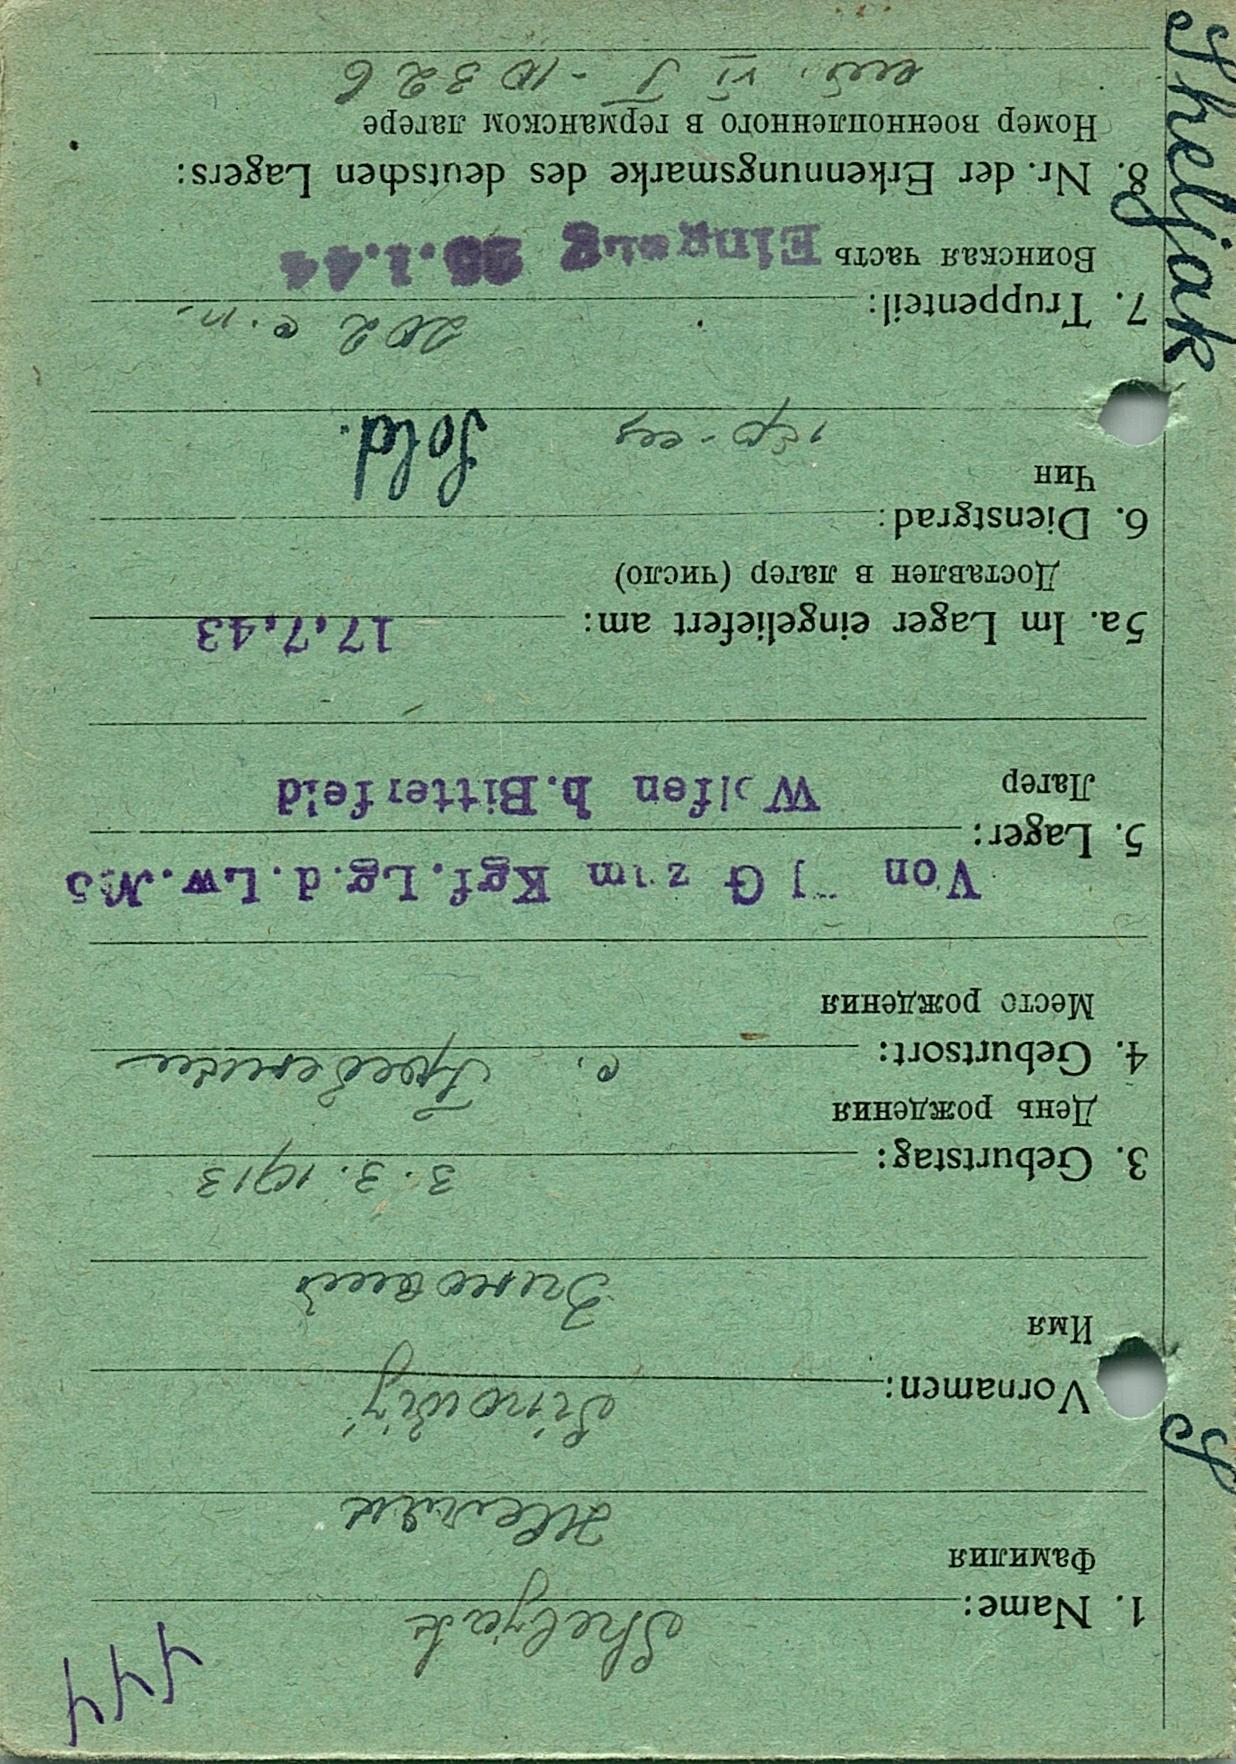 Sheljak
S
1. Name: Sheljak
Фамилия
Желяк
Vornamen: Sinowij
Имя
Зиновий
3. Geburtstag: 3.3.1913
День рождения
4. Geburtsort: с.
Место рождения
Von G zum Kgf.Lg.d.Lw.№5
5. Lager:
Лагер
Wolfen b.Bitterfeld
5a. Im Lager eingeliefert am: 17.7.43
Доставлен в лагер (число)
6. Dienstgrad: Sold.
Чин
7. Truppenteil: 202 с.п.
Воинская часть Eingang 25.1.44
8. Nr. der Erkennungsmarke des deutschen Lagers:
Номер военнопленного в германском лагере
VI J - 10326